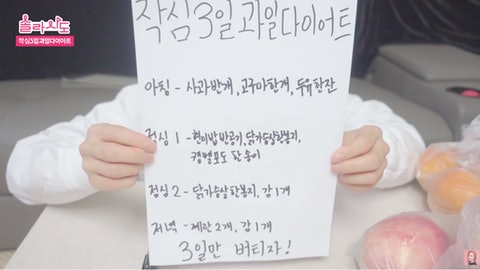 솔라시도
작심3일과일다이어트
작심3일과일다이어트
아침 - 사과반개, 고구마한개, 두유한잔
점심 1 - 현미밥반공기, 닭가슴살한봉지,
캠벨포도 한송이
점심 2 - 닭가슴살한봉지, 감 1개
저녁 - 계란 2개, 감 1개
3일만 버티자!